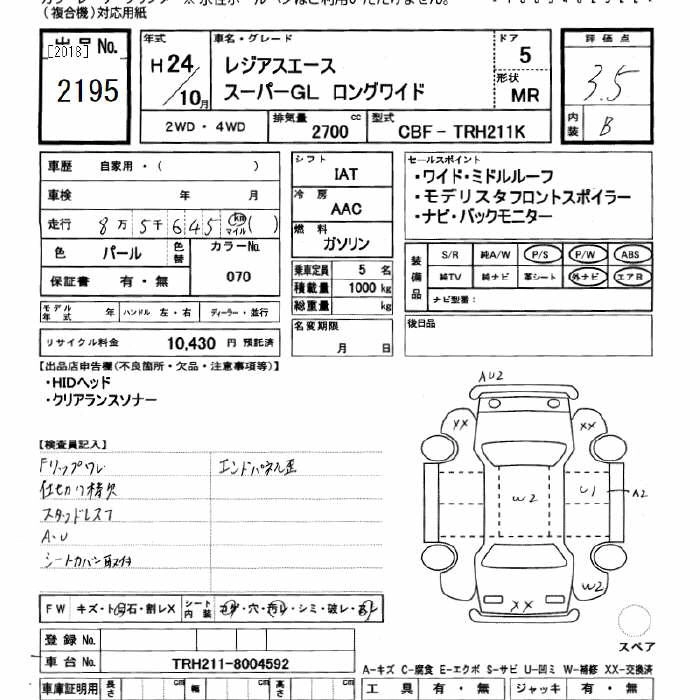 (複合機)対応用紙
出品No.
[2018]
2195
年式
H24/10月
車名・グレード
レジアスエース
スーパーGL ロングワイド
ドア
5
形状
MR
評価点
3.5
内装
B
2WD・4WD
排気量
2700 cc
型式
CBF-TRH211K
車歴 自家用・( )
車検 年 月
走行 8万5千645 km マイル ( )
色 パール 色替
カラーNo.
070
保証書 有・無
シフト
IAT
冷房
AAC
燃料
ガソリン
乗車定員 5 名
積載量 1000 kg
総重量 kg
名変期限
月 日
セールスポイント
・ワイド・ミドルルーフ
・モデリスタフロントスポイラー
・ナビ・バックモニター
装備品
S/R 純A/W P/S P/W ABS
純TV 純ナビ 革シート 外ナビ エアB
ナビ型番:
後日品
モデル年式 年 ハンドル 左・右 ディーラー・並行
リサイクル料金 10,430 円 預託済
【出品店申告欄(不良箇所・欠品・注意事項等)】
・HIDヘッド
・クリアランスソナー
【検査員記入】
Fリップワレ エンドパネル歪
仕切り棒欠
スタッドレス7
A・U
シートカバー取付
AU2
XX XX
W2 U1 A2
W2
XX
スペア
FW キズ・ト・飛石・割レX シート内装 コゲ・穴・汚レ・シミ・破レ・スレ
登録No.
車台No. TRH211-8004592
A-キズ C-腐食 E-エクボ S-サビ U-凹ミ W-補修 XX-交換済
車庫証明用 長さ cm 幅 cm 高さ cm
工具 有・無 ジャッキ 有・無